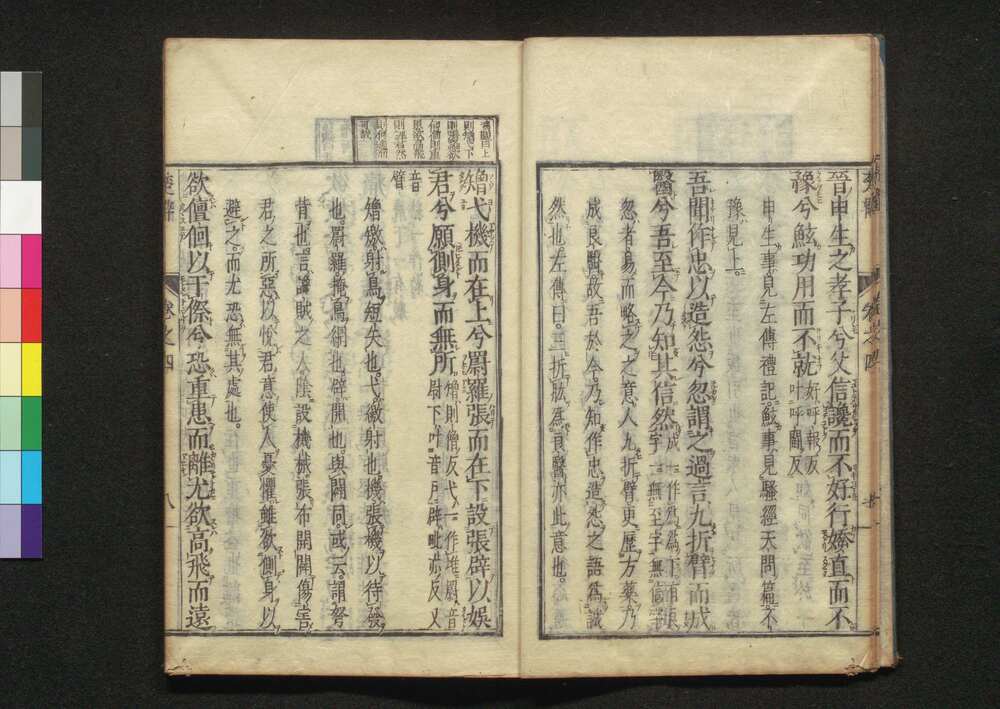 晉申生之孝子兮父信讒而不好行婞直而不
豫兮鮌功用而不就好呼報反
叶呼鬭反
申生事見左傳禮記鮌事見騷經天問篇不
豫見上
吾聞作忠以造怨兮忽謂之過言九折臂而成
醫兮吾至今乃知其信然
忽者易而略之之意人九折臂更歷方藥乃
成良醫故吾於今乃知作忠造怨之語爲誠
然也左傳曰三折肱爲良醫亦此意也
矰弋機而在上兮罻羅張而在下設張辟以娛
君兮願側身而無所
矰繳射鳥短矢也弋繳射也機張機以待發
也罻羅掩鳥網也辟開也與闢同或云謂弩
背也言讒賊之人陰設機械張布開闢傷害
君之所惡以悅君意使人憂懼雖欲側身以
避之而尤恐無其處也
欲儃佪以干傺兮恐重患而離尤欲高飛而遠
楚辭
卷之四
八